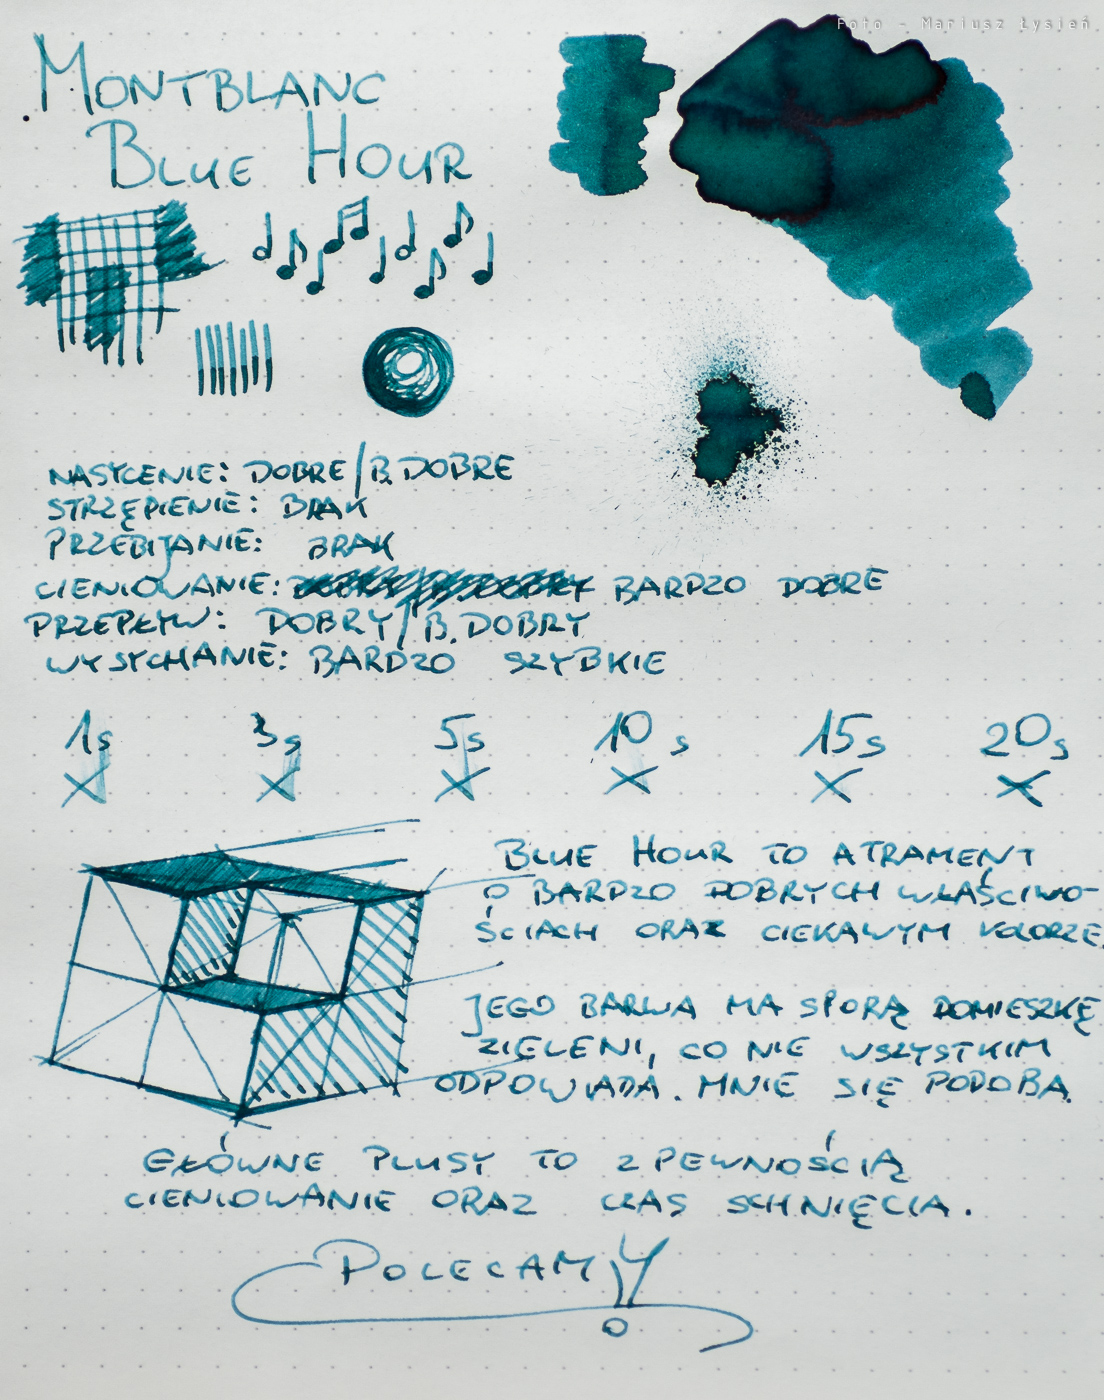 Foto - Mariusz Łysień
MONTBLANC
BLUE HOUR
NASYCENIE: DOBRE/B.DOBRE
STRZĘPIENIE: BRAK
PRZEBIJANIE: BRAK
CIENIOWANIE: BARDZO DOBRE
PRZEPŁYW: DOBRY/B.DOBRY
WYSYCHANIE: BARDZO SZYBKIE
1s 3s 5s 10s 15s 20s
BLUE HOUR TO ATRAMENT
O BARDZO DOBRYCH WŁAŚCIWO-
ŚCIACH ORAZ CIEKAWYM KOLORZE.
JEGO BARWA MA SPORĄ DOMIESZKĘ
ZIELENI, CO NIE WSZYSTKIM
ODPOWIADA. MNIE SIĘ PODOBA.
GŁÓWNE PLUSY TO Z PEWNOŚCIĄ
CIENIOWANIE ORAZ CZAS SCHNIĘCIA.
POLECAMY!